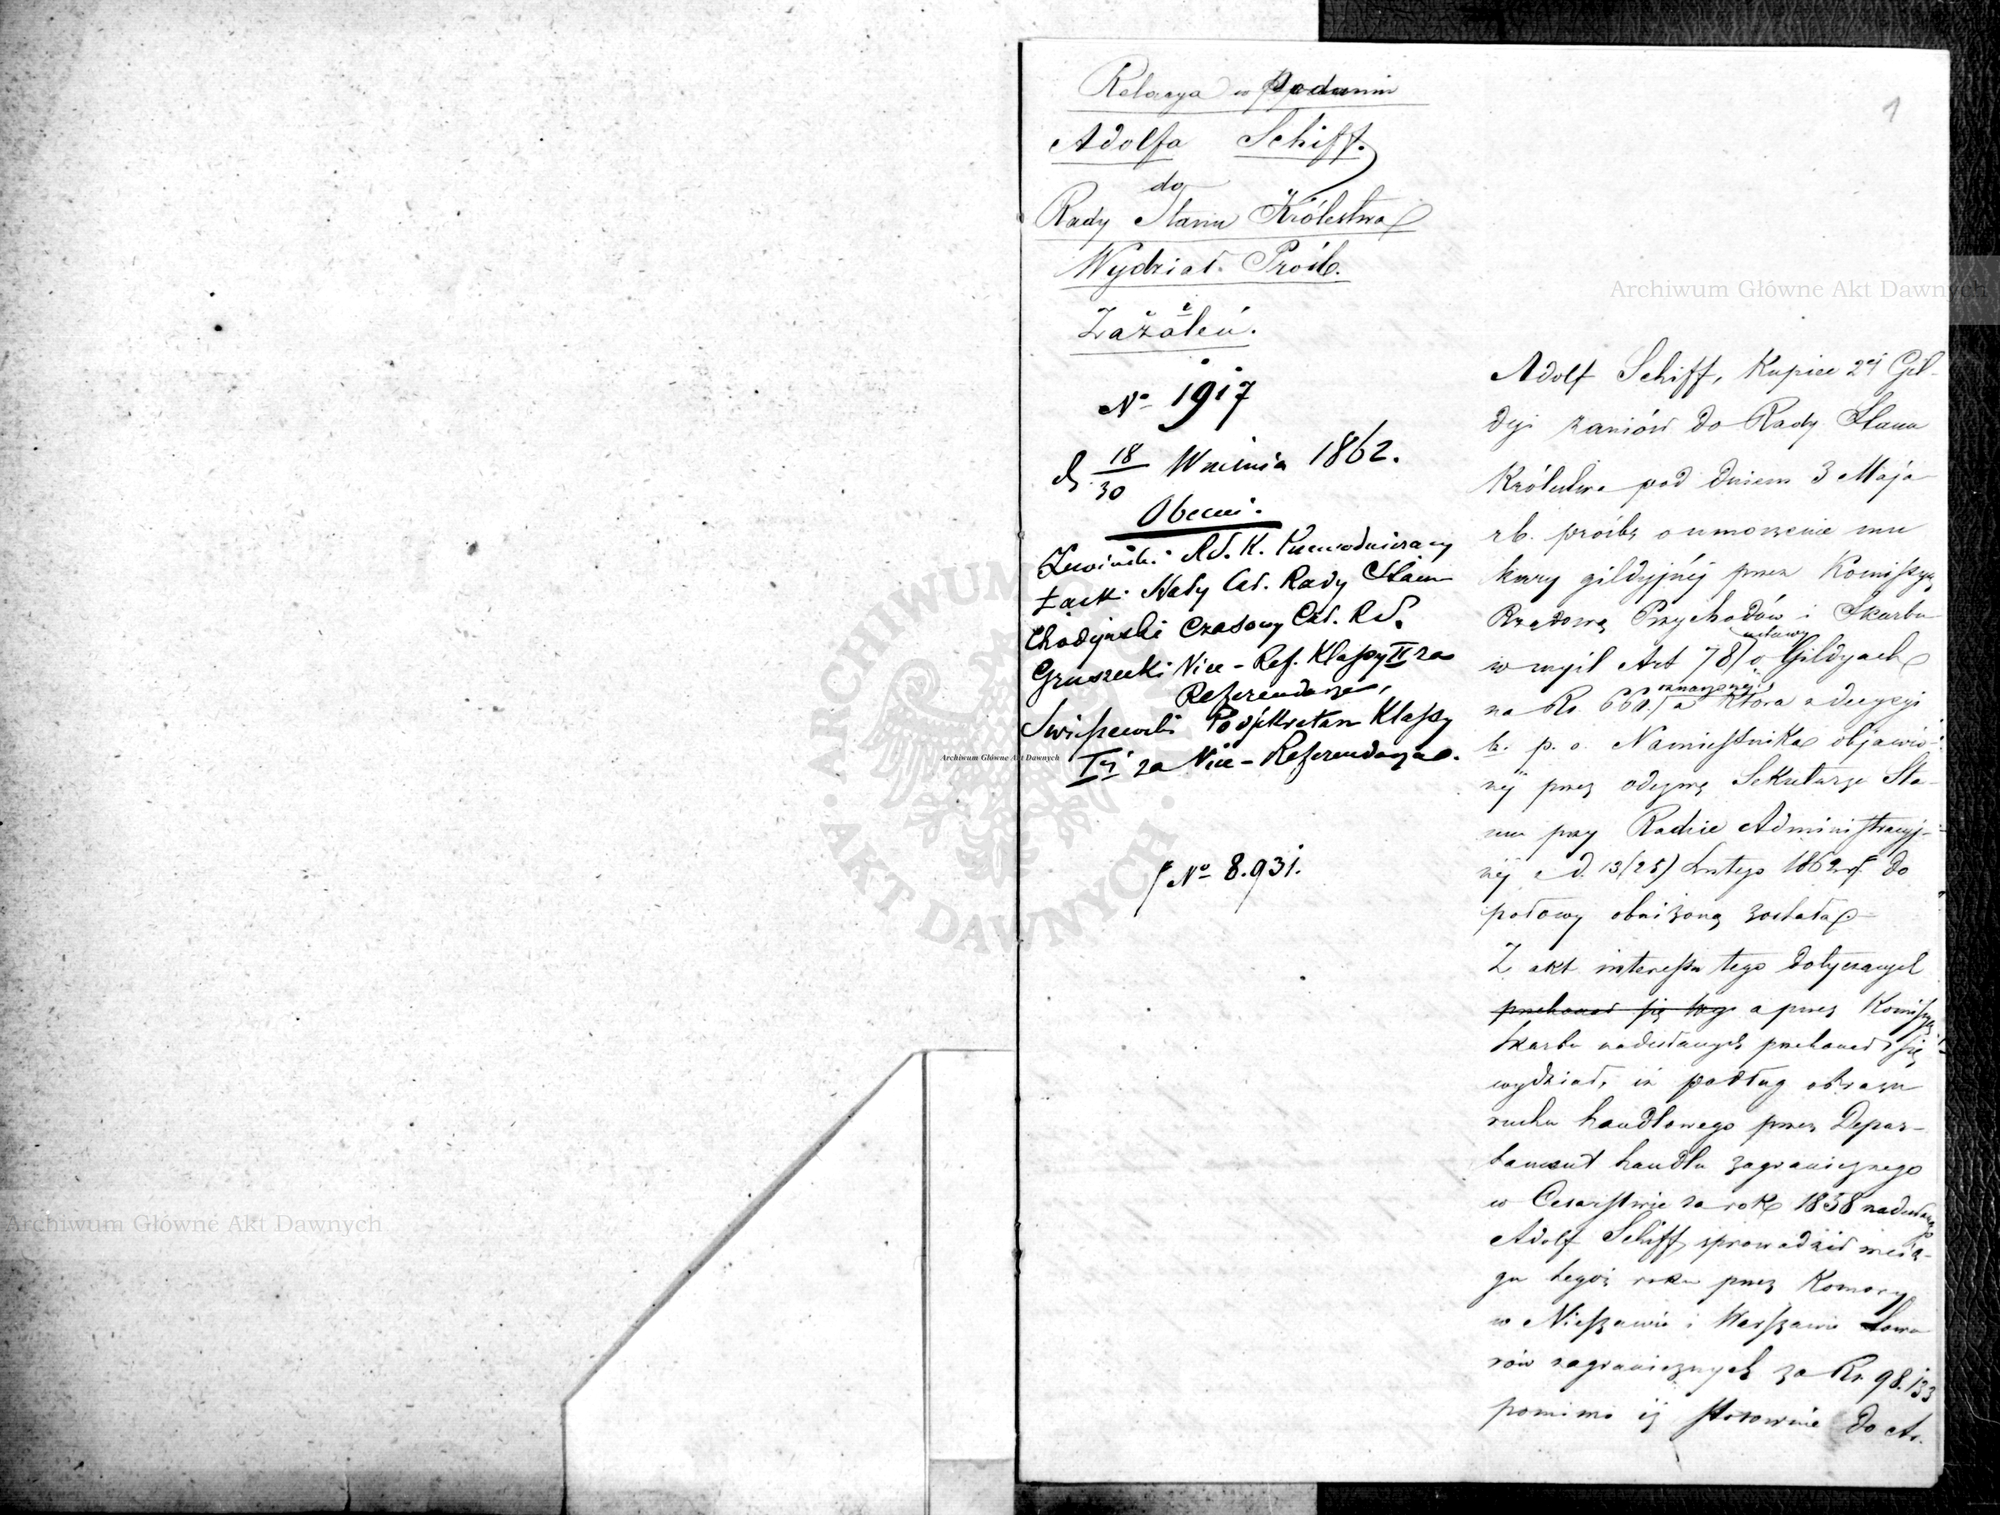 1
Relacya w Podaniu
Adolfa Schiff.
do
Rady Stanu Królestwa
Wydział Próśb.
i
Zażaleń.
No 1917
d. 18/30 Września 1862.
Obecni.
R. S. K. Przewodniczący
Łącki Stały Czł. Rady Stanu
Chodyński Czasowy Czł. R S.
Gruszecki Vice-Ref. Klassy II za
Referendarza,
Podsekretarz Klassy
IIéj za Vice-Referendarza.
No 8.931.
Adolf Schiff, Kupiec 2éj Gil-
dyi zaniósł do Rady Stanu
Królestwa pod dniem 3 Maja
rb. prośbę o umorzenie mu
kary gildyjnéj przez Komissyę
Rządową Przychodów i Skarbu
w myśl Art 78 ustawy o Gildyach
na Rs. 660 oznaczonéj, a która z decyzyi
b. p. o. Namiestnika objawio-
néj przez odezwę Sekretarza Sta-
nu przy Radzie Administracyj-
néj z d. 13/(25) Lutego 1862 r. do
połowy obniżoną została
Z akt interessu tego dotyczących
przekonał się tego a przez Komissyę
Skarbu nadesłanych przekonał się
wydział, iż podług obrazu
ruchu handlowego przez Depar-
tament handlu zagranicznego
w Cesarstwie za rok 1858 nadesłanego
Adolf Schiff, sprowadził w cią-
gu tegoż roku przez Komory
w Nieszawie i Warszawie towa
rów zagranicznych za Rs. 98.133
pomimo iż stosownie do Ar.
Archiwum Główne Akt Dawnych
Archiwum Główne Akt Dawnych
Archiwum Główne Akt Dawnych
ARCHIWUM AKT DAWNYCH